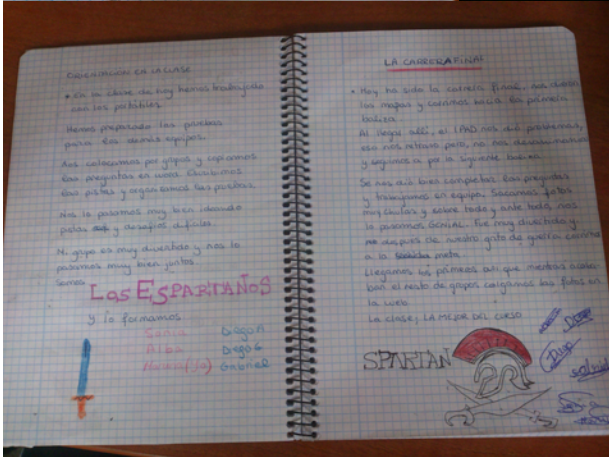 ORIENTACIÓN EN LA CLASE
• En la clase de hoy hemos trabajado
con los portátiles.
Hemos preparado las pruebas
para los demás equipos.
Nos colocamos por grupos y copiamos
las preguntas en word. Escribimos
las pistas y organizamos las pruebas.
Nos lo pasamos muy bien ideando
pistas y desafíos difíciles.
Mi grupo es muy divertido y nos lo
pasamos muy bien juntos.
Somos
LOS ESPARTAÑOS
y lo formamos
Diego A
Alba Diego G
Gabriel
LA CARRERA FINAL
• Hoy ha sido la carrera final, nos dieron
los mapas y corrimos hacia la primera
baliza.
Al llegar allí, el IPAD nos dió problemas,
eso nos retrasó pero, no nos desanimamos
y seguimos a por la siguiente baliza.
Se nos dió bien completar las preguntas
y trabajamos en equipo. Sacamos fotos
muy chulas y sobre todo y ante todo, nos
lo pasamos GENIAL. Fue muy divertido y
después de nuestro grito de guerra corrimos
a la meta.
Llegamos los primeros así que mientras acaba-
ban el resto de grupos colgamos las fotos en
la web.
La clase, LA MEJOR DEL CURSO
SPARTAN
Diego